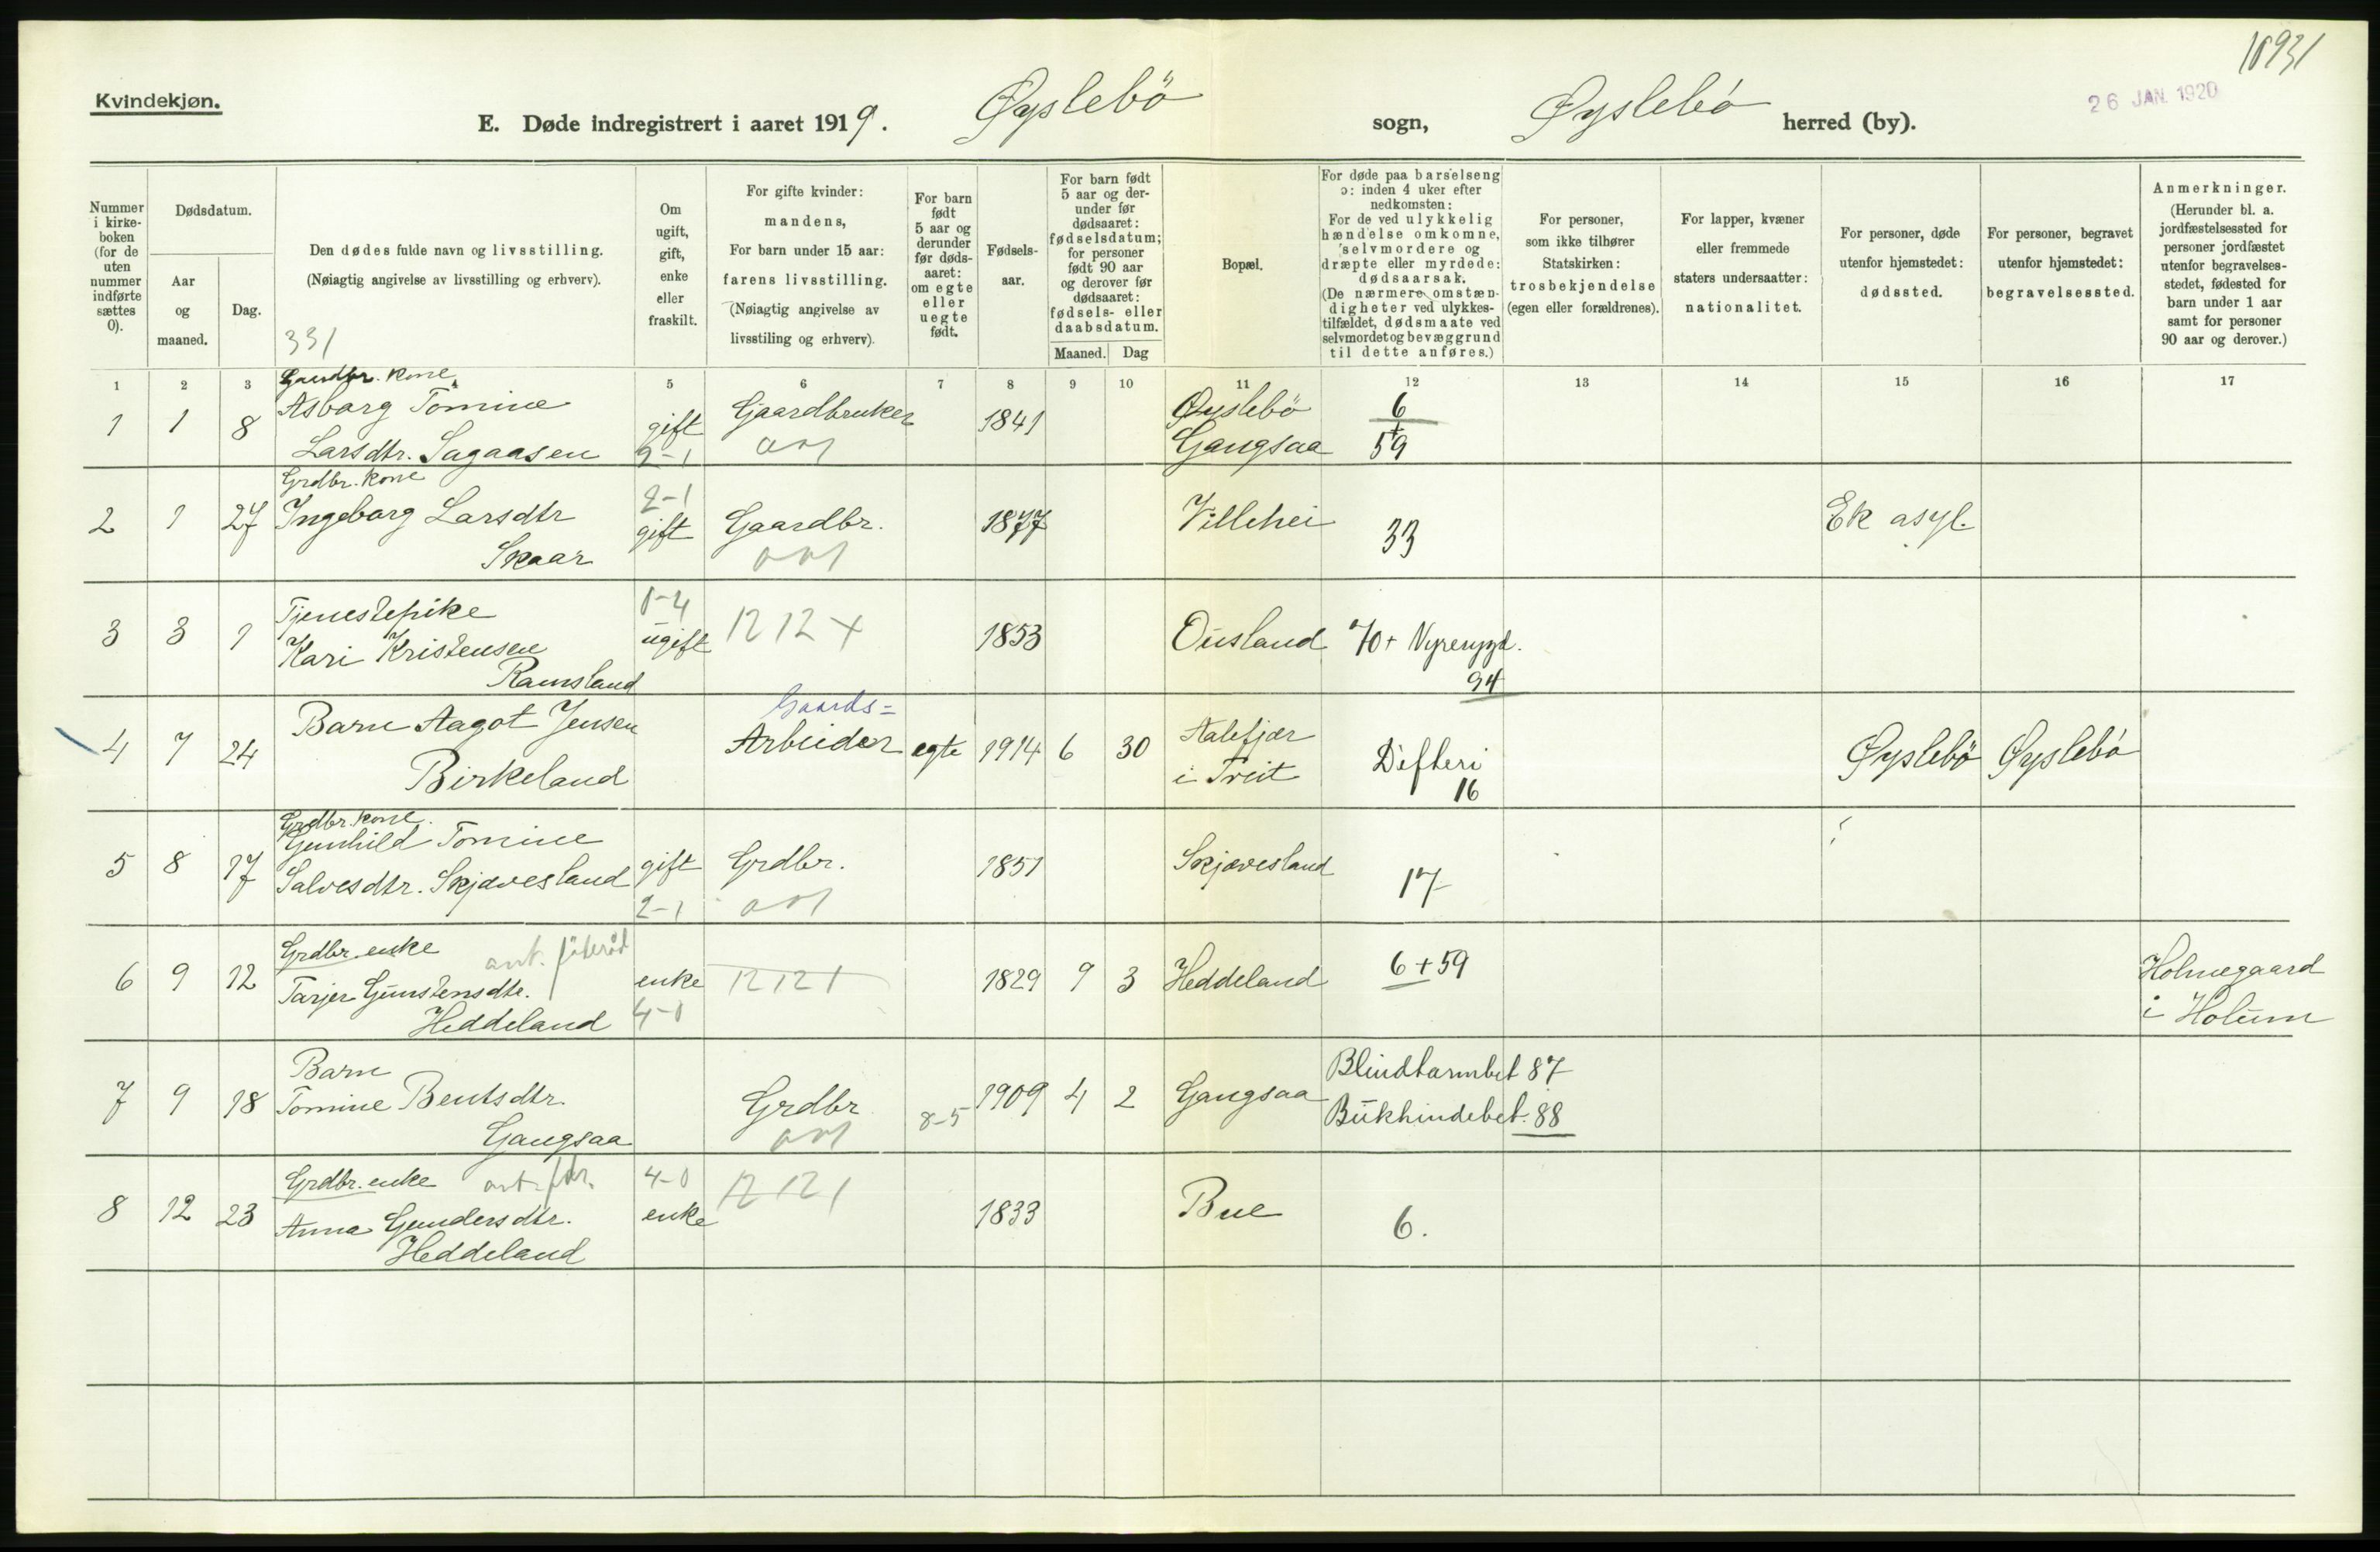 10931
26 JAN. 1920
Kvindekjøn.
E. Døde indregistrert i aaret 1919. Øyslebö sogn, Øyslebö herred (by).
Nummer i kirkeboken (for de uten nummer indførte sættes 0).
Dødsdatum.
Aar og maaned.
Dag.
Den dødes fulde navn og livsstilling.
(Nøiagtig angivelse av livsstilling og erhverv).
331
Om ugift, gift, enke eller fraskilt.
For gifte kvinder: mandens,
For barn under 15 aar: farens livsstilling.
(Nøiagtig angivelse av livsstiling og erhverv).
For barn født 5 aar og derunder før dødsaaret: om egte eller uegte født.
Fødselsaar.
For barn født 5 aar og derunder før dødsaaret: fødselsdatum; for personer født 90 aar og derover før dødsaaret: fødsels- eller daabsdatum.
Maaned. Dag
Bopæl.
For døde paa barselseng ɔ: inden 4 uker efter nedkomsten:
For de ved ulykkelig hændelse omkomne, selvmordere og dræpte eller myrdede: dødsaarsak.
(De nærmere omstændigheter ved ulykkestilfældet, dødsmaate ved selvmordet og bevæggrund til dette anføres.)
For personer, som ikke tilhører Statskirken: trosbekjendelse (egen eller forældrenes).
For lapper, kvæner eller fremmede staters undersaatter: nationalitet.
For personer, døde utenfor hjemstedet: dødssted.
For personer, begravet utenfor hjemstedet: begravelsessted.
Anmerkninger.
(Herunder bl. a. jordfæstelsessted for personer jordfæstet utenfor begravelsesstedet, fødested for barn under 1 aar samt for personer 90 aar og derover.)
1 2 3 5 6 7 8 9 10 11 12 13 14 15 16 17
Gaardbr. kone
1 1 8 Asborg Tomine gift Gjaardbruker 1841 Øyslebö 6 +
Larsdtr. Sagaasen 2-1 Gangsaa 59
Grdbr. kone 2-1
2 1 27 Ingeborg Larsdtr gift Gaardbr. 1877 Villehei 33 Ek asyl.
Skaar
Tjenestepike
3 3 1 Kari Kristensen ugift 12 12 x 1853 Ousland 70+
Ramsland 94
Gaards=
4 7 24 Barn Aagot Jensen Arbeider egte 1914 6 30 Aalefjær Difteri Øyslebö Øyslebö
Birkeland i Treit 16
Grdbr. kone.
5 8 17 Gunhild Tomine gift Grdbr. 1851 Skjævesland 17
Salvesdtr. Skjævesland
2-1
Grdbr. enke
6 9 12 Tarjer Gunstensdtr. enke 12 12 1 1829 9 3 Heddeland 6+59 Holmegaard
Heddeland 4-0 i Holum
Barn Blindtarmbet 87
7 9 18 Tomine Bentsdtr. Grdbr 8-5 1909 4 2 Gangsaa Bukhindebet. 88
Gangsaa
Grdbr. enke 4-0 12 12 1
8 12 23 Anna Gundersdtr. enke 1833 Bue 6.
Heddeland